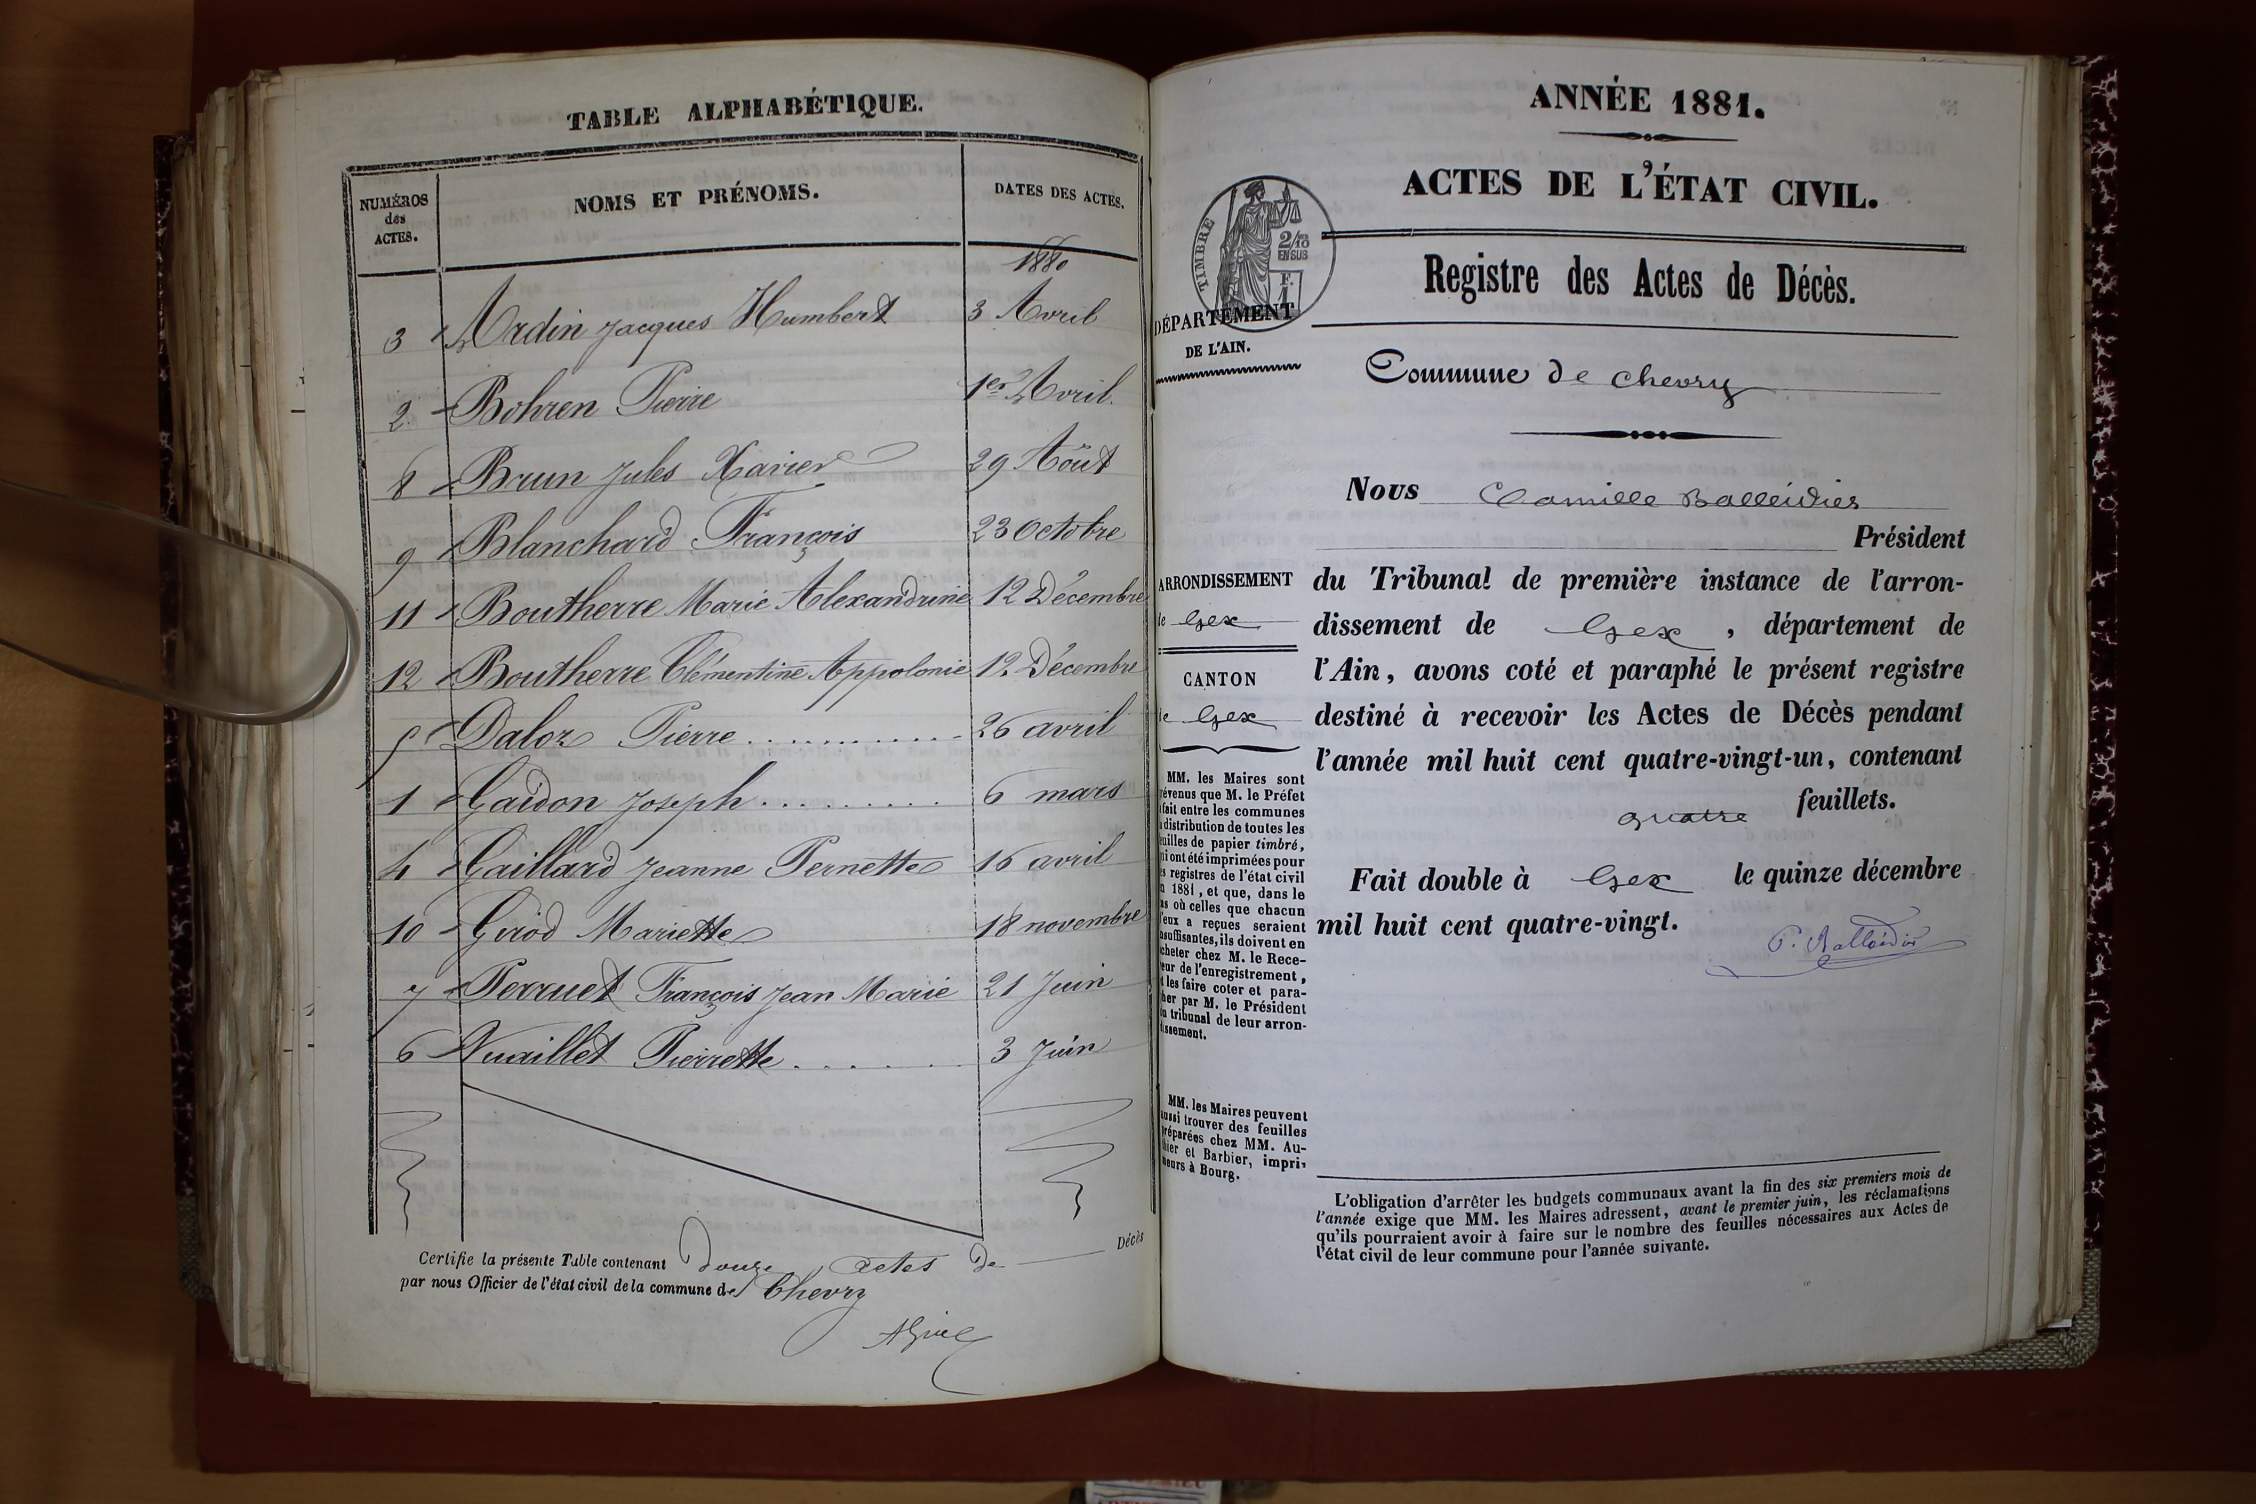 TABLE ALPHABÉTIQUE.
NUMÉROS des ACTES. NOMS ET PRÉNOMS. DATES DES ACTES.
1880
3 Ardin Jacques Humbert 3 Avril
2 Bohren Pierre 1er Avril.
8 Brun Jules Xavier 29 Août
9 Blanchard François 23 Octobre
11 Boutherre Marie Alexandrine 12 Décembre
12 Boutherre Clémentine Appolonie 12 Décembre
5 Daloz Pierre 26 avril
1 Gaidon Joseph 6 mars
4 Gaillard Jeanne Pernette 16 avril
10 Girod Mariette 18 novembre
7 Perruet François Jean Marie 21 Juin
6 Vuaillet Pierrette 3 Juin
Certifie la présente Table contenant douze actes de Décès
par nous Officier de l'état civil de la commune de Chevry
ANNÉE 1881.
ACTES DE L'ÉTAT CIVIL.
TIMBRE
2/10
EN SUS
F.
1
Registre des Actes de Décès.
DÉPARTEMENT
DE L'AIN.
Commune de Chevry
Nous Camille Balleidier
Président
du Tribunal de première instance de l'arron-
dissement de Gex, département de
l'Ain, avons coté et paraphé le présent registre
destiné à recevoir les Actes de Décès pendant
l'année mil huit cent quatre-vingt-un, contenant
quatre feuillets.
Fait double à Gex le quinze décembre
mil huit cent quatre-vingt.
ARRONDISSEMENT
de Gex
CANTON
de Gex
MM. les Maires sont
révenus que M. le Préfet
fait entre les communes
distribution de toutes les
euilles de papier timbré,
ui ont été imprimées pour
es registres de l'état civil
n 1881, et que, dans le
as où celles que chacun
d'eux a reçues seraient
nsuffisantes, ils doivent en
cheter chez M. le Rece-
eur de l'enregistrement,
t les faire coter et para-
her par M. le Président
u tribunal de leur arron-
issement.
MM. les Maires peuvent
ussi trouver des feuilles
réparées chez MM. Au-
hier et Barbier, impri-
meurs à Bourg.
L'obligation d'arrêter les budgets communaux avant la fin des six premiers mois de
l'année exige que MM. les Maires adressent, avant le premier juin, les réclamations
qu'ils pourraient avoir à faire sur le nombre des feuilles nécessaires aux Actes de
l'état civil de leur commune pour l'année suivante.